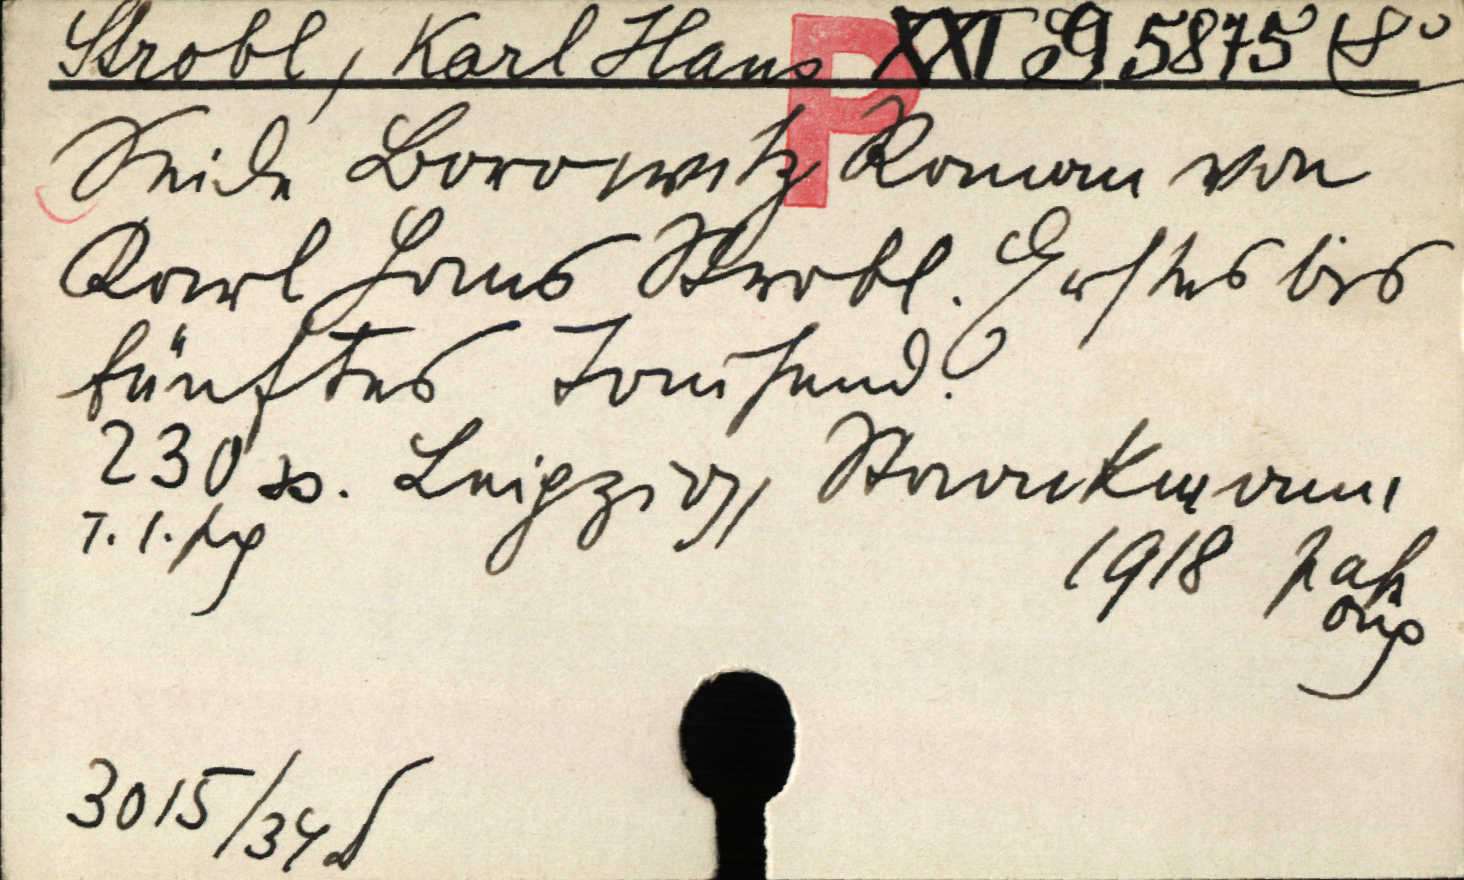 Strobl, Karl Hans P XXI D 5875 8°
Seide Borowitz Roman von
Karl Hans Strobl. Erstes bis
fünftes Tausend.
230 s. Leipzig, Staackmann
T. 1. 1918
3015/34